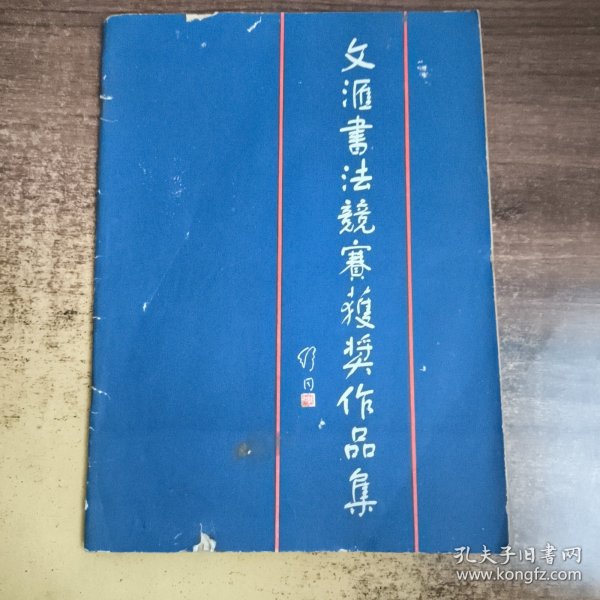 文滙書法競賽獲奬作品集
舒同
孔夫子旧书网
www.kongfz.com